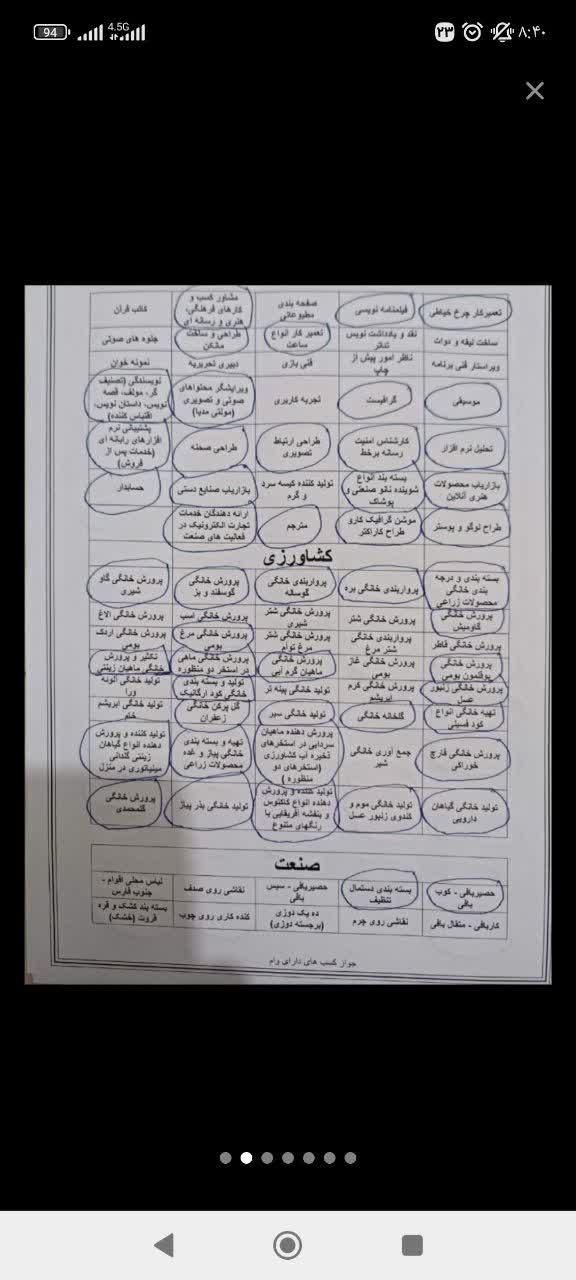 94
4.5G
۲۳
۸:۴۰
تعمیرکار چرخ خیاطی
فیلمنامه نویسی
صفحه بندی مطبوعاتی
مشاور کسب و کارهای فرهنگی، هنری و رسانه ای
کاتب قران
ساخت لیقه و دوات
نقد و یادداشت نویس تئاتر
تعمیر کار انواع ساعت
طراحی و ساخت ماکان
جلوه های صوتی
ویراستار فنی برنامه
ناظر امور پیش از چاپ
فنی بازی
دبیری تحریریه
نمونه خوان
موسیقی
گرافیست
تجربه کاربری
ویرایشگر محتواهای صوتی و تصویری (مولتی مدیا)
نویسندگی (تصنیف گر، مولف، قصه نویس، داستان نویس، اقتباس کننده)
تحلیل نرم افزار
کارشناس امنیت رسانه برخط
طراحی ارتباط تصویری
طراحی صحنه
پشتیبانی نرم افزارهای رایانه ای (خدمات پس از فروش)
بازاریاب محصولات هنری آنلاین
بسته بند انواع شوینده نانو صنعتی و پوشاک
تولید کننده کیسه سرد و گرم
بازاریاب صنایع دستی
حسابدار
طراح لوگو و پوستر
موشن گرافیک کارو طراح کاراکتر
مترجم
ارائه دهندگان خدمات تجارت الکترونیک در فعالیت های صنعت
کشاورزی
بسته بندی و درجه بندی خانگی محصولات زراعی
پرواربندی خانگی بره
پرواربندی خانگی گوساله
پرورش خانگی گوسفند و بز
پرورش خانگی گاو شیری
پرورش خانگی گاومیش
پرورش خانگی شتر
پرورش خانگی شتر شیری
پرورش خانگی اسب
پرورش خانگی الاغ
پرورش خانگی قاطر
پرواربندی خانگی شتر مرغ
پرورش خانگی شتر مرغ توام
پرورش خانگی مرغ بومی
پرورش خانگی اردک بومی
پرورش خانگی بوقلمون بومی
پرورش خانگی غاز بومی
پرورش خانگی ماهیان گرم آبی
پرورش خانگی ماهی در استخر دو منظوره
تکثیر و پرورش خانگی ماهیان زینتی
پرورش خانگی زنبور عسل
پرورش خانگی کرم ابریشم
تولید خانگی پیله تر
تولید و بسته بندی خانگی کود ارگانیک
تولید خانگی آلوئه ورا
تهیه خانگی انواع کود فسیلی
گلخانه خانگی
تولید خانگی سیر
گل پرکن خانگی زعفران
تولید خانگی ابریشم خام
پرورش خانگی قارچ خوراکی
جمع آوری خانگی شیر
پرورش دهنده ماهیان سردابی در استخرهای ذخیره آب کشاورزی (استخرهای دو منظوره)
تهیه و بسته بندی خانگی پیاز و غده محصولات زراعی
تولید کننده و پرورش دهنده انواع گیاهان زینتی گلدانی مینیاتوری در منزل
تولید خانگی گیاهان دارویی
تولید خانگی موم و کندوی زنبور عسل
تولید کننده و پرورش دهنده انواع کاکتوس و بنفشه آفریقایی با رنگهای متنوع
تولید خانگی بذر پیاز
پرورش خانگی گلمحمدی
صنعت
حصیربافی - کوب بافی
بسته بندی دستمال تنظیف
حصیربافی - سیس بافی
نقاشی روی صدف
لباس محلی اقوام - جنوب فارس
کاربافی - متقال بافی
نقاشی روی چرم
ده یک دوزی (برجسته دوزی)
کنده کاری روی چوب
بسته بند کشک و قره قروت (خشک)
جواز کسب های دارای وام